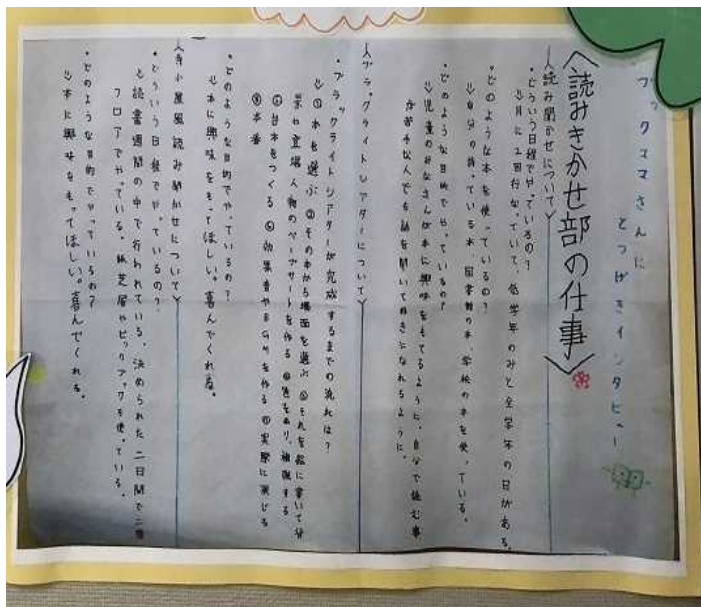 ブックママさんに
とつげきインタビュー
〈読みきかせ部の仕事〉
〈読み聞かせについて〉
・どういう日程でやっているの?
⇒月に2回行なっていて、低学年のみと全学年の日がある。
・どのような本を使っているの?
⇒自分の持っている本、図書館の本、学校の本を使っている。
・どのような目的でやっているの?
⇒児童のみなさんが本に興味をもてるように、自分で読む事
が苦手な人でも話を聞いて好きになれるように。
〈ブラックライトシアターについて〉
・ブラックライトシアターが完成するまでの流れは?
⇒①本を選ぶ ②その本から場面を選ぶ ③それを紙に書いて
景や登場人物のペープサートを作る ④色をぬり、補強する
⑤台本をつくる ⑥効果音やBGMを作る ⑦実際に演じる
⑧本番
・どのような目的でやっているの?
⇒本に興味をもってほしい。喜んでくれる。
〈寺小屋風読み聞かせについて〉
・どういう日程でやっているの?
⇒読書週間の中で行われている。決められた二日間で二階
フロアでやっている。紙芝居やビックブックを使っている。
・どのような目的でやっているの?
⇒本に興味をもってほしい。喜んでくれる。